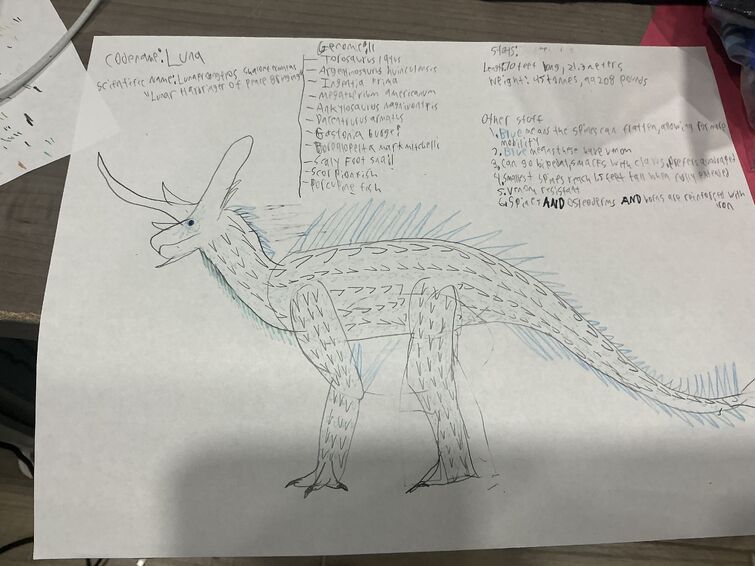 Codename: Luna
Scientific Name:
"Lunar Harbringer of Peace Bringing"
Genome:
- Torosaurus latus
- Argentinosaurus huinculensis
- Ingentia prima
- Megatherium americanum
- Ankylosaurus magniventris
- Dacentrurus armatus
- Gastonia burgei
- Borealopelta markmitchelli
- Scaly Foot snail
- Scorpionfish
- Porcupine fish
Stats:
Length: 70 feet long, 21.3 meters
Weight: 45 tonnes, 99208 pounds
Other stuff
1. Blue means the spines can flatten, allowing for more
mobility
2. Blue means these have venom
3. Can go bipedal, smacks with claws, prefers quadrupedal
4. smallest spines reach 1.5 feet tall when fully extended
5. venom resistant
6. Spines AND Osteoderms AND horns are reinforced with
iron